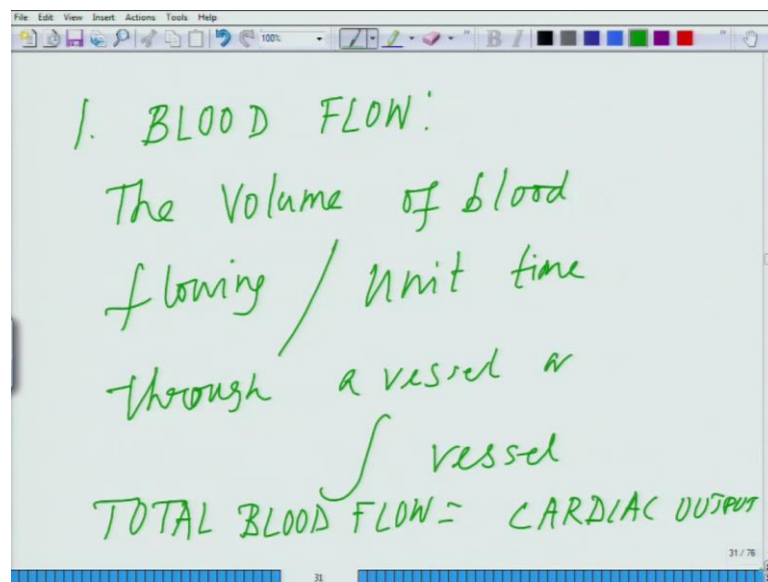 File Edit View Insert Actions Tools Help
100%
1. BLOOD FLOW:
The Volume of blood
flowing / Unit time
through a vessel or
vessel
TOTAL BLOOD FLOW = CARDIAC OUTPUT
31 / 76
31